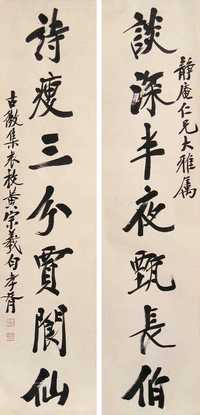 靜庵仁兄大雅属
談深半夜甄長伯
詩瘦三分賈閬仙
集黃宗羲句孝胥